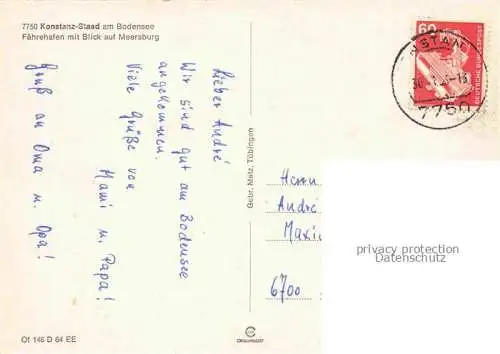 7750 Konstanz-Staad am Bodensee
Fährehafen mit Blick auf Meersburg
Lieber André
Wir sind gut am Bodensee
angekommen.
Viele Grüße von
Mami u. Papa!
Gruß an Oma u. Opa!
Gebr. Metz, Tübingen
60
DEUTSCHE BUNDESPOST
7750
Herrn
André
Maxi
6700
privacy protection
Datenschutz
Ot 146 D 64 EE